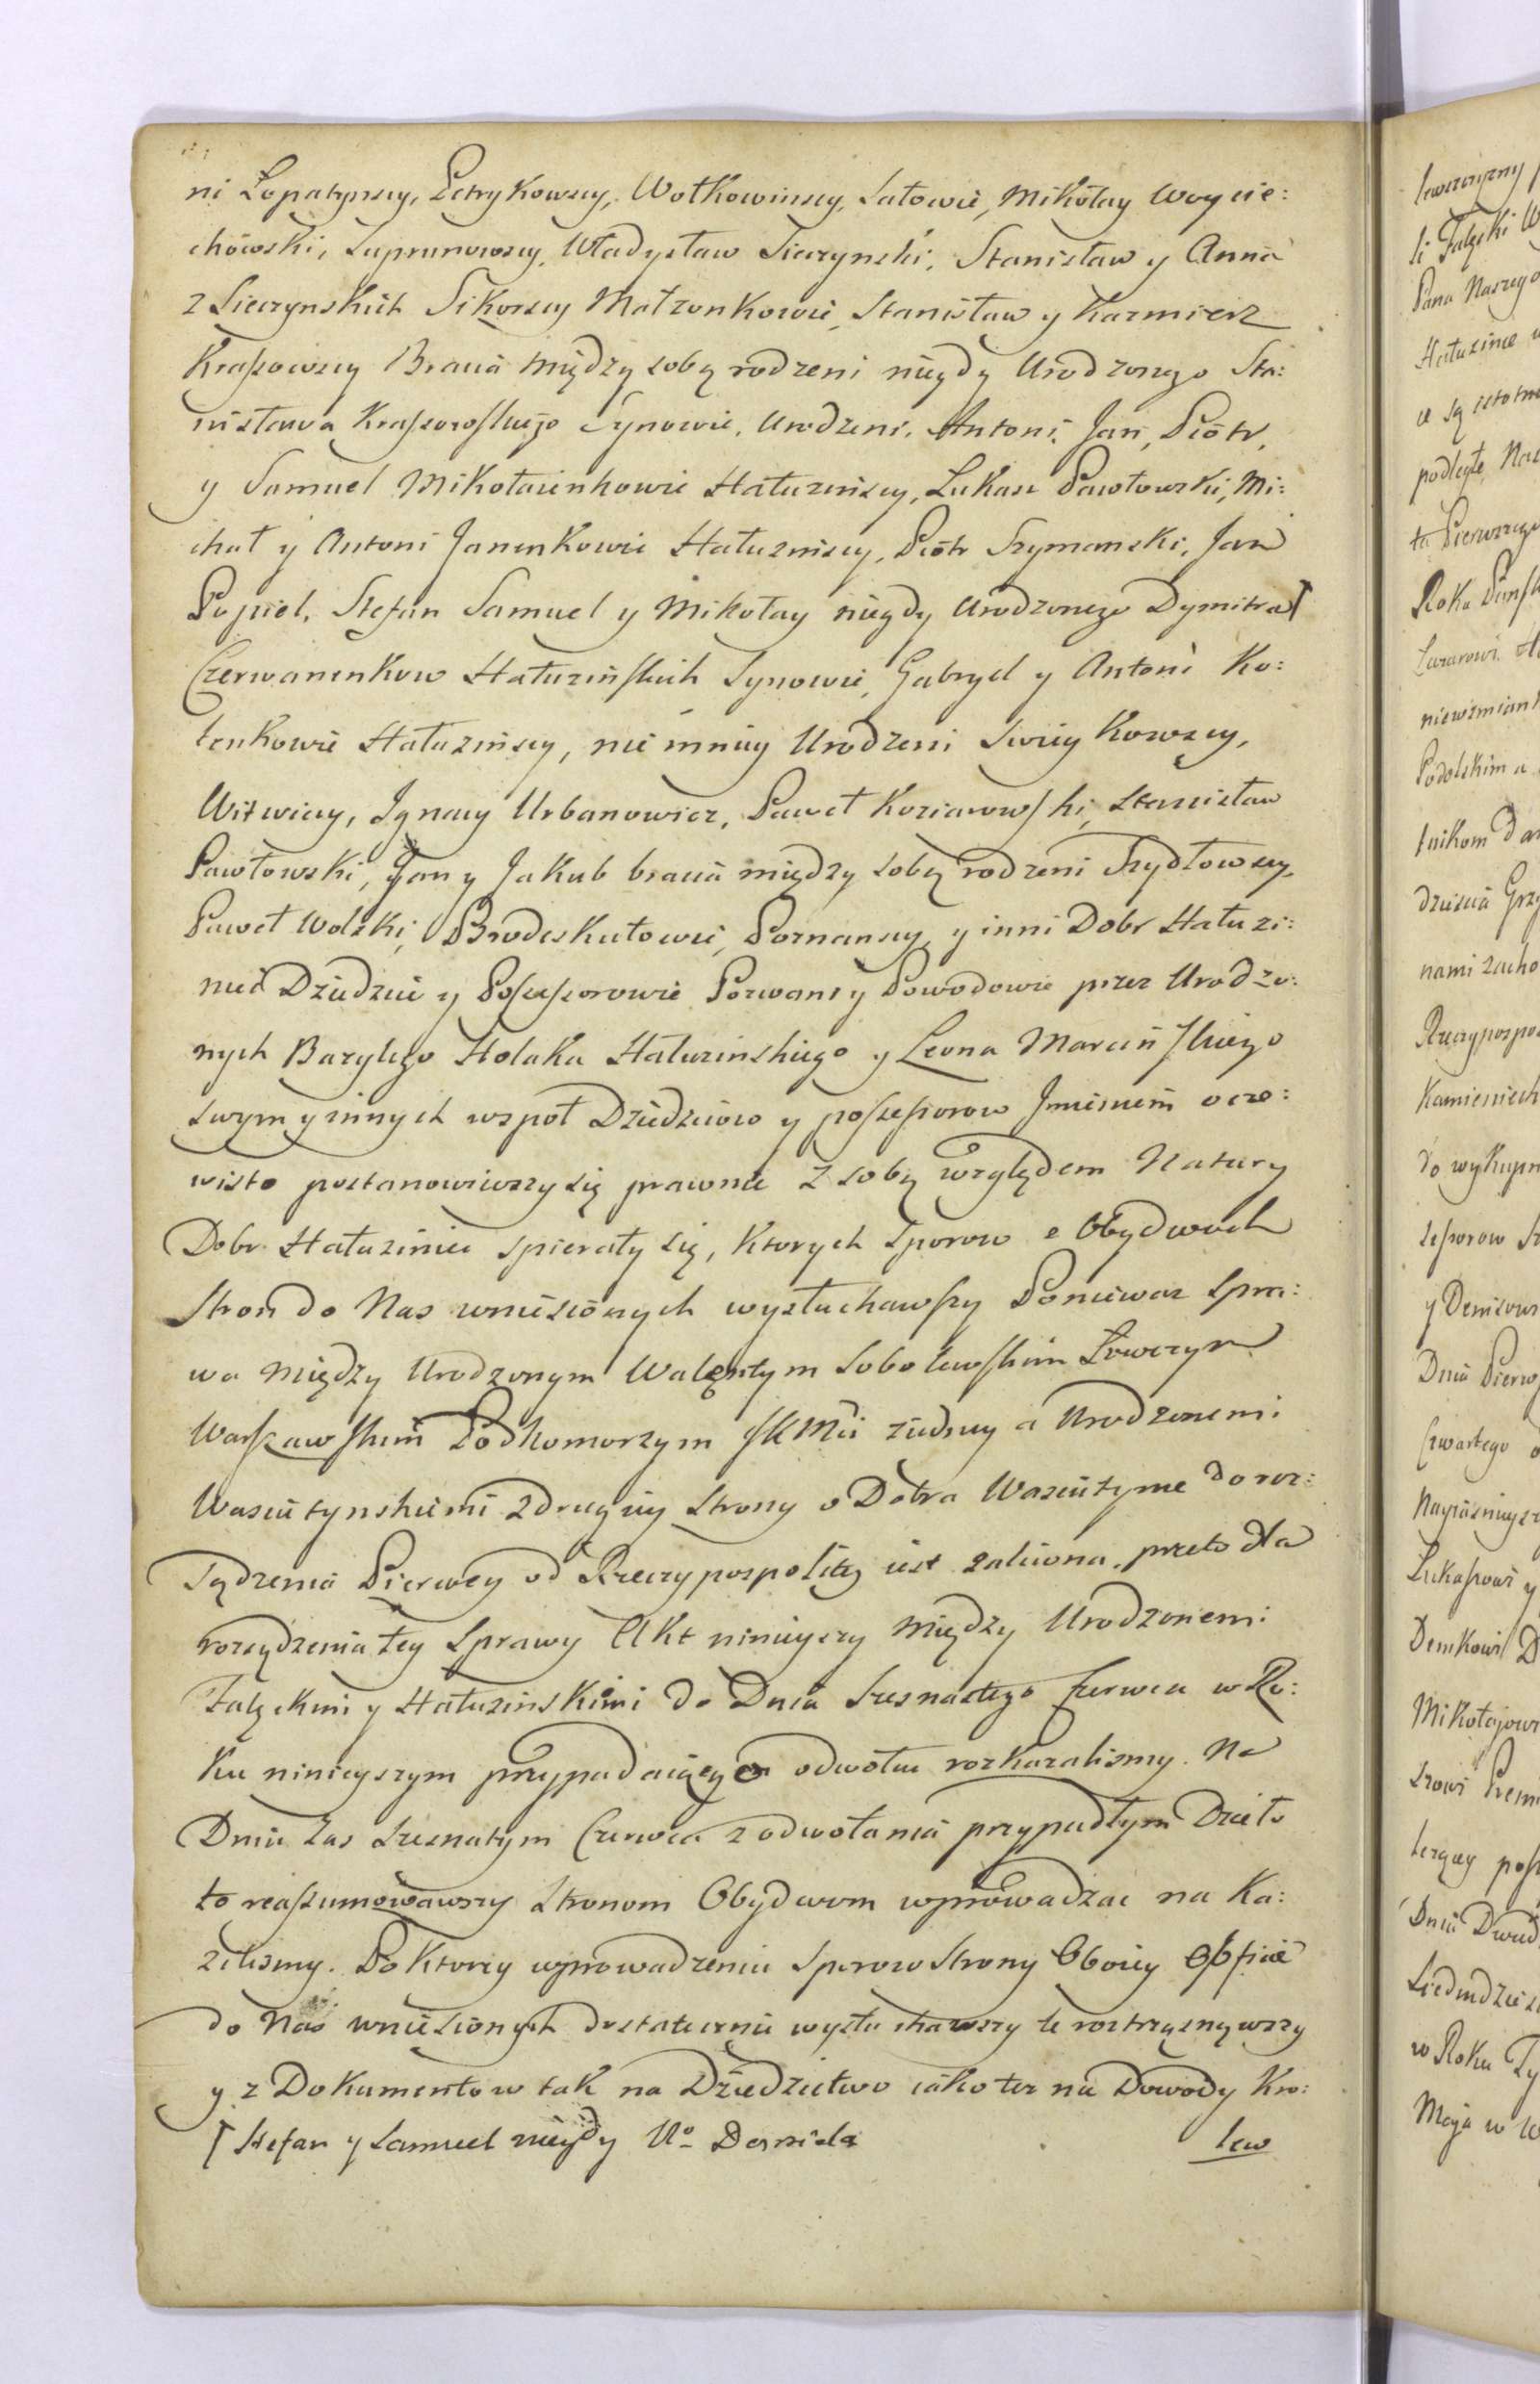 ni Łopatynscy, Petrykowscy, Wołkowinscy, Satowie, Mikołay Woycie:
chowski, Suprunowscy, Władysław Sieczynski, Stanisław y Anna
z Sieczynskich Sikorscy Małzonkowie, Stanisław y Kazmierz
Kraſsowscy Bracia między sobą rodzeni niegdy Urodzonego Sta:
nisława Kraſsowſkiego Synowie, Urodzeni, Antoni, Jan, Piotr,
y Samuel Mikołaienkowie Hałuzinscy, Łukasz Pawłowski, Mi:
chał y Antoni Janenkowie Hałuzinscy, Piotr Szymanski, Jan
Popiel, Stefan Samuel y Mikołay niegdy Urodzonego Dymitra Ꞁ
Czerwanenkow Hałuzinſkich Synowie, Gabryel y Antoni Ko:
lenkowie Hałuzinscy, nie mniey Urodzeni Swieykowscy,
Witwiccy, Ignacy Urbanowicz, Paweł Koziarowſki, Stanisław
Pawłowski, Jan y Jakub bracia między sobą rodzeni Szydłowscy,
Paweł Wolski, Brodeskułowie, Poznanscy, y inni Dobr Hałuzi:
niec Dziedzice y Poſseſsorowie Pozwani y Powodowie przez Urodzo:
nych Bazylego Holaka Hałuzinskiego y Leona Marcinſkiego
swym y innych wspoł Dziedzicow y poſseſsorow Jmieniem oczo:
wisto postanowiwszy się prawnie z sobą względem Natury
Dobr Hałuziniec spierały się, Ktorych sporow z Obydwoch
Stron do Nas wniesionych wysłuchawſzy Poniewaz Spra:
wa między Urodzonym Walentym Sobolewſkim Łowczym
Warſzawſkim Podkomorzym JKMci z iedney a Urodzonemi
Wasiutynskiemi z drugiey Strony o Dobra Wasiutynce do roz:
Sądzenia Pierwey od Rzeczypospolitey iest zalecona, przeto dla
rozsądzenia tey Sprawy Akt ninieyszy między Urodzonemi
Załęskmi y Hałuzinskimi do Dnia Szesnastego Czerwca w Ro:
ku ninieyszym przypadaiącego odwołac rozkazalismy. Na
Dniu zas szesnatym Czerwca z odwołania przypadłym Dzieło
to reaſsumowawszy Stronom Obydwom wprowadzac na Ka:
zalismy. Po Ktorey wprowadzeniu Sporow Strony Oboiey Obficie
do Nas wniesionych dostatecznie wysłuchawszy te roztrząsnąwszy
y z Dokumentow tak na Dziedzictwo iako tez na Dowody Kro:
Ꞁ Stefan y Samuel niegdy Uo Daniela
lew